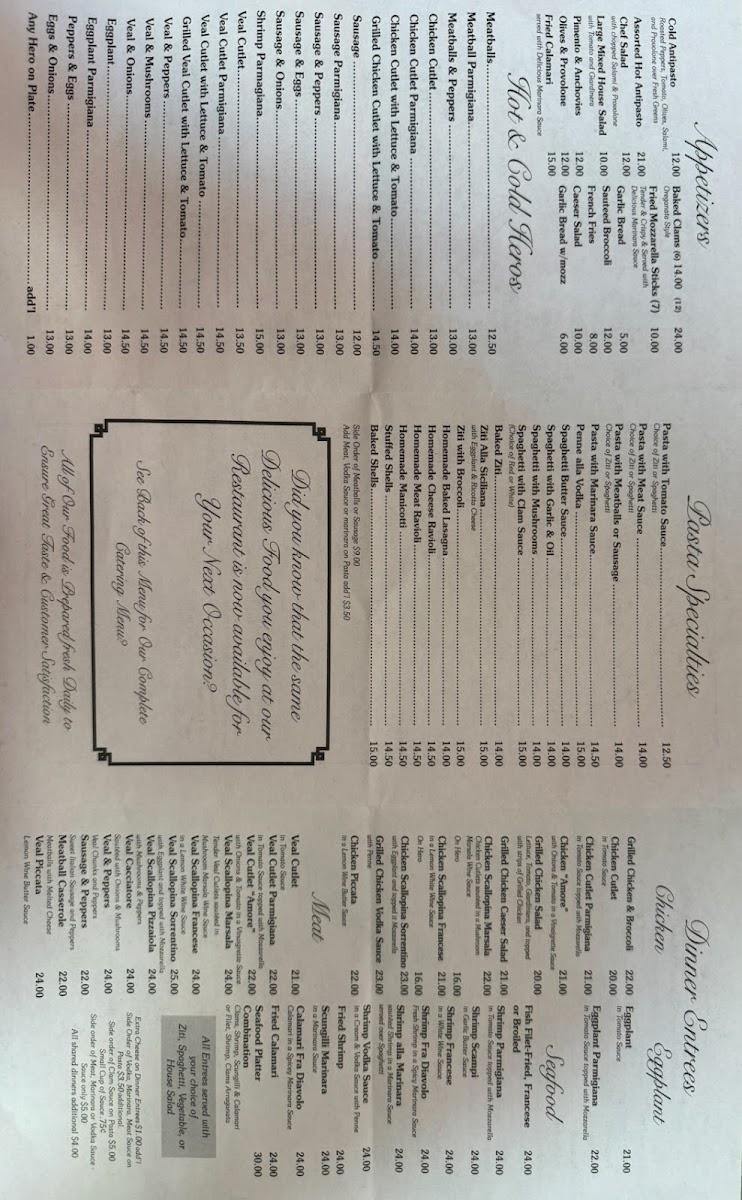 Appetizers
Cold Antipasto 12.00
Roasted Peppers, Tomato, Olives, Salami,
and Provolone over Fresh Greens
Assorted Hot Antipasto 21.00
Chef Salad 12.00
with chopped Salami & Provolone
Large Mixed House Salad 10.00
with Tomato and Giardinera
Pimento & Anchovies 12.00
Olives & Provolone 12.00
Fried Calamari 15.00
served with Delicious Marinara Sauce
Baked Clams (6) 14.00 (12) 24.00
Oreganata Style
Fried Mozzarella Sticks (7) 10.00
Tender & Crispy & Served with
Delicious Marinara Sauce
Garlic Bread 5.00
Sauteed Broccoli 12.00
French Fries 8.00
Caeser Salad 10.00
Garlic Bread w/mozz 6.00
Hot & Cold Heros
Meatballs 12.50
Meatball Parmigiana 13.00
Meatballs & Peppers 13.00
Chicken Cutlet 13.00
Chicken Cutlet Parmigiana 14.00
Chicken Cutlet with Lettuce & Tomato 14.00
Grilled Chicken Cutlet with Lettuce & Tomato 14.50
Sausage 12.00
Sausage Parmigiana 13.00
Sausage & Peppers 13.00
Sausage & Eggs 13.00
Sausage & Onions 13.00
Shrimp Parmagiana 15.00
Veal Cutlet 13.50
Veal Cutlet Parmigiana 14.50
Veal Cutlet with Lettuce & Tomato 14.50
Grilled Veal Cutlet with Lettuce & Tomato 14.50
Veal & Peppers 14.50
Veal & Mushrooms 14.50
Veal & Onions 14.50
Eggplant 13.00
Eggplant Parmigiana 14.00
Peppers & Eggs 13.00
Eggs & Onions 13.00
Any Hero on Plate add'l 1.00
Pasta Specialties
Pasta with Tomato Sauce 12.50
Choice of Ziti or Spaghetti
Pasta with Meat Sauce 14.00
Choice of Ziti or Spaghetti
Pasta with Meatballs or Sausage 14.00
Choice of Ziti or Spaghetti
Pasta with Marinara Sauce 14.50
Penne alla Vodka 15.00
Spaghetti Butter Sauce 14.00
Spaghetti with Garlic & Oil 14.00
Spaghetti with Mushrooms 14.00
Spaghetti with Clam Sauce 15.00
(Choice of Red or White)
Baked Ziti 14.00
Ziti Alla Siciliana 15.00
with Eggplant & Ricotta Cheese
Ziti with Broccoli 15.00
Homemade Baked Lasagna 14.00
Homemade Cheese Ravioli 14.50
Homemade Meat Ravioli 14.50
Homemade Manicotti 14.50
Stuffed Shells 14.50
Baked Shells 15.00
Side Order of Meatballs or Sausage $9.00
Add Meat, Vodka Sauce or marinara on Pasta add'l $3.50
Did you know that the same
Delicious Food you enjoy at our
Restaurant is now available for
Your Next Occasion?
See Back of this Menu for Our Complete
Catering Menu?
All of Our Food is Prepared fresh Daily to
Ensure Great Taste & Customer Satisfaction
Dinner Entrees
Chicken
Grilled Chicken & Broccoli 22.00
Chicken Cutlet 20.00
in Tomato Sauce
Chicken Cutlet Parmigiana 21.00
in Tomato Sauce topped with Mozzarella
Chicken "Amore" 21.00
with Onions & Tomato in a Vinaigrette Sauce
Grilled Chicken Salad 20.00
Lettuce, Tomato, Giardinera, and topped
with strips of Grilled Chicken
Grilled Chicken Caeser Salad 21.00
Chicken Scallopina Marsala 22.00
Chicken Cutlets sauteed in a Mushroom
Marsala Wine Sauce
On Hero 16.00
Chicken Scallopina Francese 21.00
in a Lemon White Wine Sauce
On Hero 16.00
Chicken Scallopina Sorrentino 23.00
with Eggplant and topped w/Mozzarella
Grilled Chicken Vodka Sauce 23.00
with Penne
Chicken Piccata 22.00
in a Lemon Wine Butter Sauce
Meat
Veal Cutlet 21.00
in Tomato Sauce
Veal Cutlet Parmigiana 22.00
in Tomato Sauce topped with Mozzarella
Veal Cutlet "Amore" 22.00
with Onions & Tomato in a Vinaigrette Sauce
Veal Scallopina Marsala 24.00
Tender Veal Cutlets sauteed in
Mushroom Marsala Wine Sauce
Veal Scallopina Francese 24.00
in a Lemon White Wine Sauce
Veal Scallopina Sorrentino 25.00
with Eggplant and topped with Mozzarella
Veal Scallopina Pizzaiola 24.00
with Mushrooms & Peppers
Veal Cacciatore 24.00
Sauteed with Onions & Mushrooms
Veal & Peppers 24.00
Veal Chunks and Peppers
Sausage & Peppers 22.00
Sweet Italian Sausage and Peppers
Meatball Casserole 22.00
Meatballs with Melted Cheese
Veal Piccata 24.00
Lemon Wine Butter Sauce
Eggplant
Eggplant 21.00
in Tomato Sauce
Eggplant Parmigiana 22.00
in Tomato Sauce topped with Mozzarella
Seafood
Fish Filet-Fried, Francese 24.00
or Broiled
Shrimp Parmigiana 24.00
in Tomato Sauce topped with Mozzarella
Shrimp Scampi 24.00
in Garlic Butter Sauce
Shrimp Francese 24.00
in a White Wine Sauce
Shrimp Fra Diavolo 24.00
Fresh Shrimp in a Spicy Marinara Sauce
Shrimp alla Marinara 24.00
sauteed Shrimp in a Marinara Sauce
served over Spaghetti
Shrimp Vodka Sauce 24.00
in a Cream & Vodka Sauce with Penne
Fried Shrimp 24.00
Scungilli Marinara 24.00
in a Marinara Sauce
Calamari Fra Diavolo 24.00
Calamari in a Spicey Marinara Sauce
Fried Calamari 24.00
Seafood Platter 30.00
Combination
Clams, Shrimp, Scungilli & Calamari
or Filet, Shrimp, Clams Arreganata
All Entrees served with
your choice of
Ziti, Spaghetti, Vegetable, or
House Salad
Extra Cheese on Dinner Entrees $1.00 add'l
Side Order of Vodka, Marinara, Meat Sauce on
Pasta $3.50 additional
Side order of Clam Sauce on Pasta $5.00
Small Cup of Sauce .75¢
Side order of Meat, Marinara or Vodka Sauce -
Sauce only $5.00
All shared dinners additional $4.00